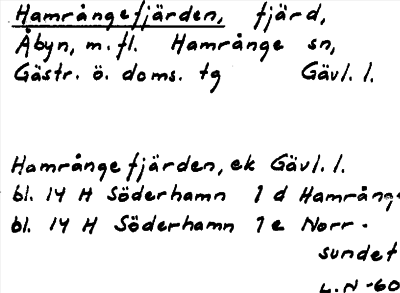 Hamrångefjärden, fjärd,
Åbyn, m.fl. Hamrånge sn,
Gästr. ö. doms. tg Gävl. l.
Hamrångefjärden, ek Gävl. l.
bl. 14 H Söderhamn 1 d Hamrång
bl. 14 H Söderhamn 1 e Norr-
sundet
L.N -60